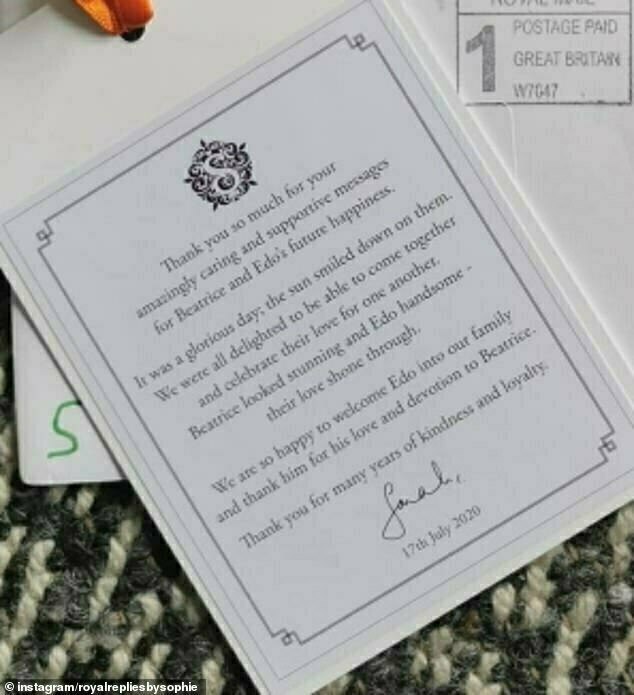 ROYAL MAIL
1
POSTAGE PAID
GREAT BRITAIN
W7047
S
Thank you so much for your
amazingly caring and supportive messages
for Beatrice and Edo's future happiness.
It was a glorious day; the sun smiled down on them.
We were all delighted to be able to come together
and celebrate their love for one another.
Beatrice looked stunning and Edo handsome -
their love shone through.
We are so happy to welcome Edo into our family
and thank him for his love and devotion to Beatrice.
Thank you for many years of kindness and loyalty.
Sarah.
17th July 2020
S
© instagram/royalrepliesbysophie